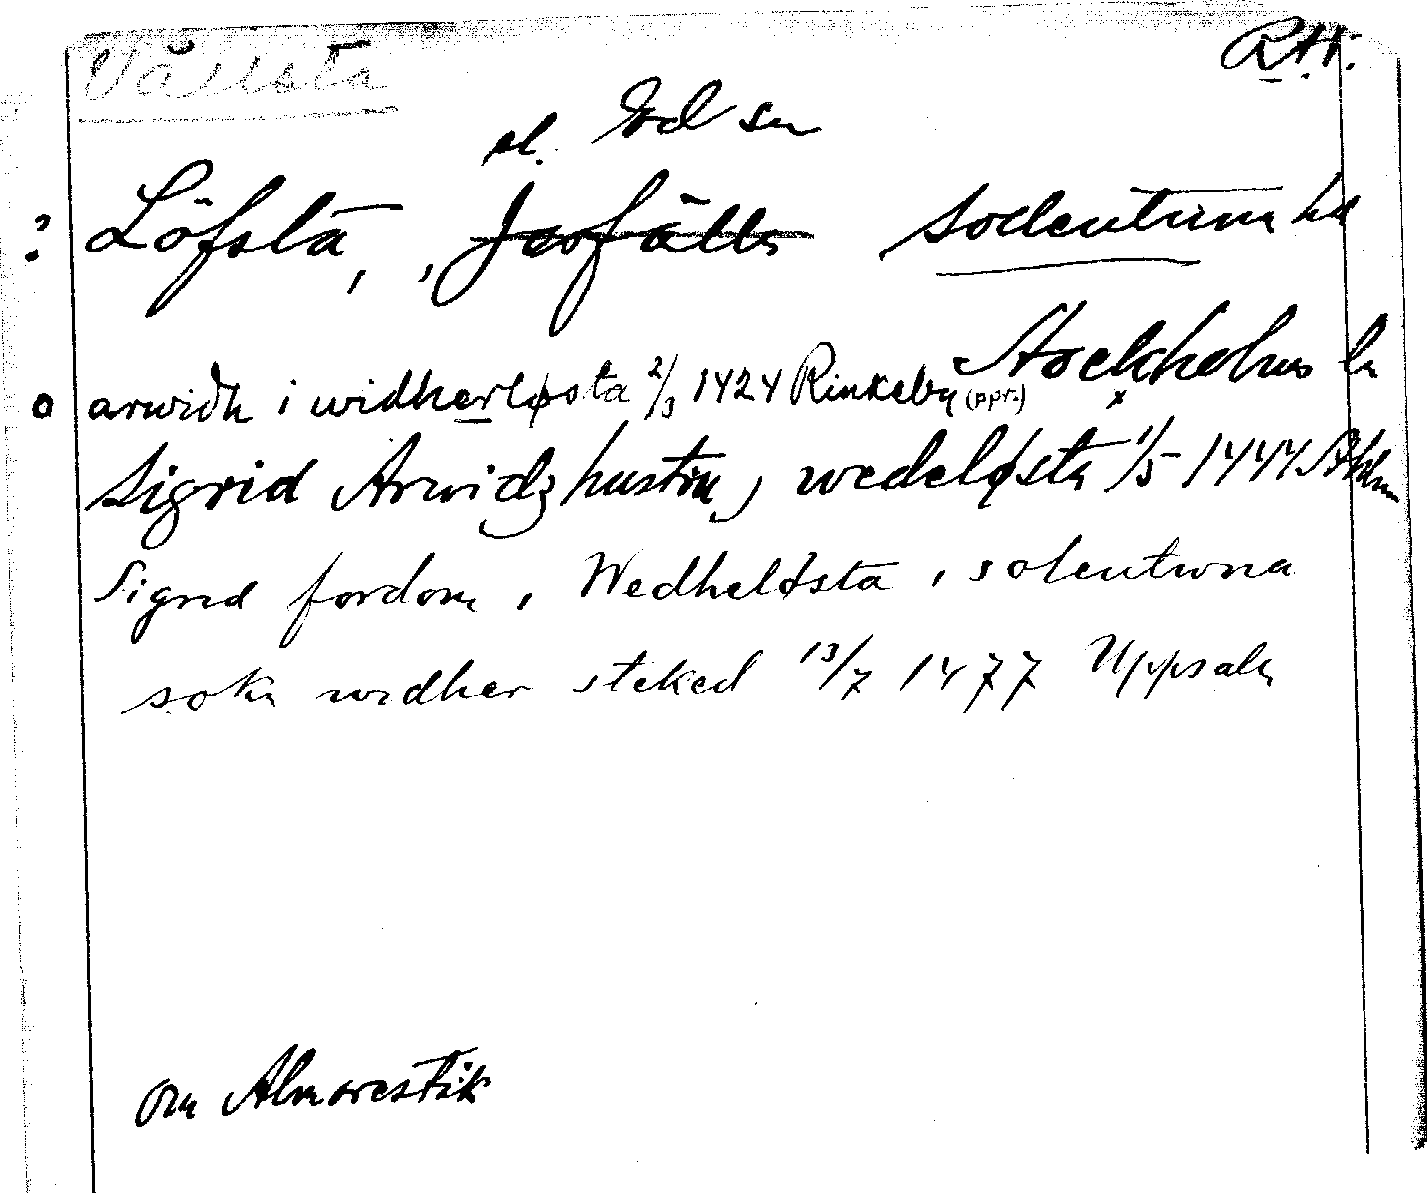 Vällsta R.A.
el. Ed sn
? Löfsta, , Jerfälla Sollentuna hd
Stockholms ln
o arwidh i widherløsta 2/3 1424 Rinkeby (ppr.) x
Sigrid Arwidz hustru, wedeløsta 1/5 1444 Sthlm
Sigrid fordom, Wedheløsta, solentuna
sokn widher steked 13/7 1477 Uppsala
om Almarestäk